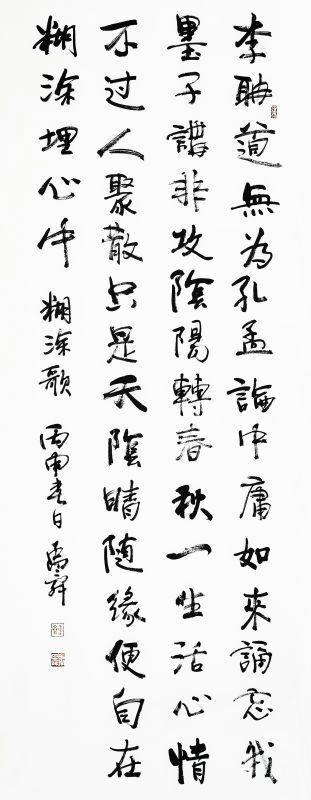 李聃道無為孔孟論中庸如來誦忘我
墨子講非攻陰陽轉春秋一生活心情
不过人聚散只是天陰晴随緣便自在
糊涂埋心中 糊涂歌 丙申春日